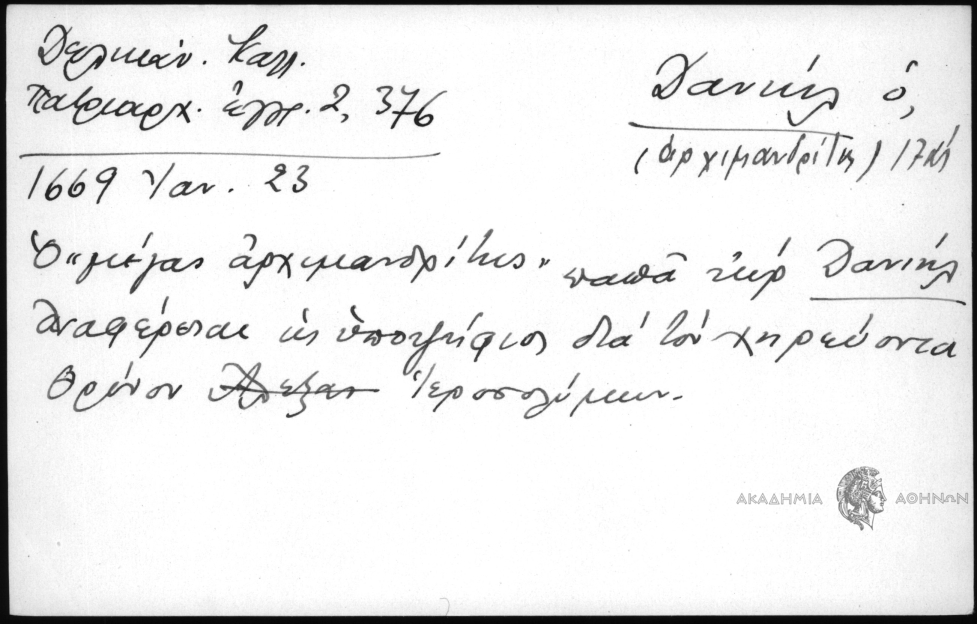 Δελικάν. Καλλ.
Πατριαρχ. ἔγγρ. 2, 376
Δανιήλ ὁ,
(ἀρχιμανδρίτης) 17ος
1669 Ἰαν. 23
Ὁ "μέγας ἀρχιμανδρίτης" παπᾶ κύρ Δανιήλ
ἀναφέρεται ὡς ὑποψήφιος διά τόν χηρεύοντα
θρόνον Ἀλεξαν Ἱεροσολύμων.
ΑΚΑΔΗΜΙΑ ΑΘΗΝΩΝ